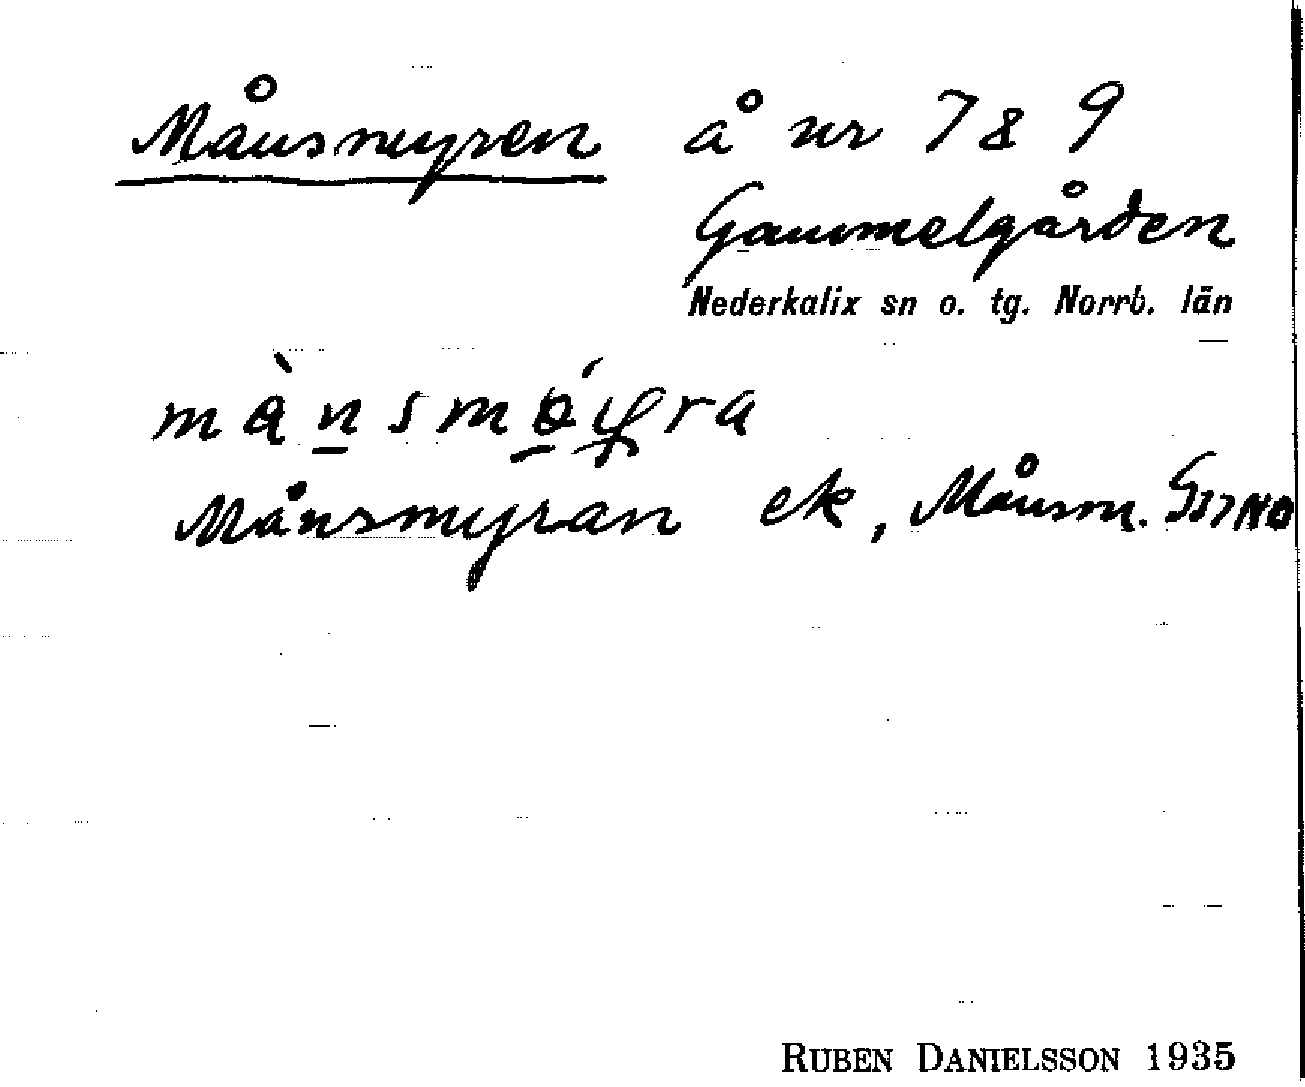 Månsmyren å nr 7 & 9
Gammelgården
Nederkalix sn o. tg. Norrb. län
Månsmyran ek, Månsm.
RUBEN DANIELSSON 1935